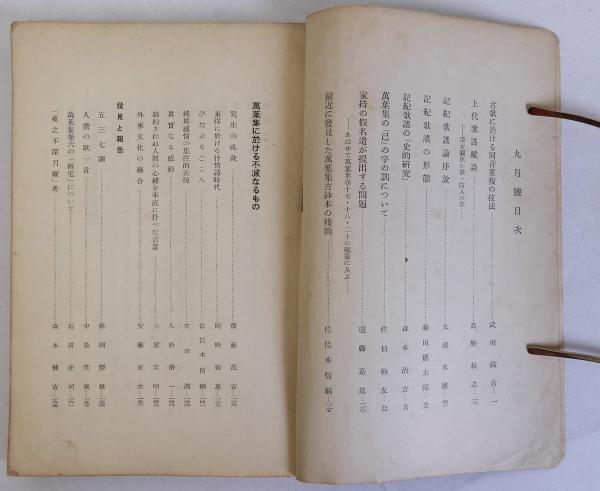 九月號目次
古歌に於ける同音重複の技法……武田祐吉…一
上代歌謠縱談……高野辰之…
記紀歌謠論序説……太田水穗…
記紀歌謠の形態……藤田德太郎…
記紀歌謠の「史的研究」……森本治吉…
萬葉集の「已」の字の訓について……佐伯梅友…
家持の假名遣が提出する問題……遠藤嘉基…
――あはせて萬葉集卷十七・十八・二十の
最近に發見した萬葉集古鈔本の殘簡……佐佐木信綱…
萬葉集に於ける不滅なるもの
寫生の成就……齋藤茂吉…
東洋に於ける抒情詩時代……岡崎義惠…
ひたぶるごころ……佐佐木信綱…
純眞感情の集注的表現……次田潤…
眞實なる感動……久松潛一…
制約されぬ人間の心緒を率直に抒べた言葉……土屋文明…
外來文化の融合……安藤正次…
發見と報告
五三七調……松岡靜雄…
人麿の歌一首……中島光風…
萬葉集卷六の「西宅」について……石井庄司…
「夜之不深刀爾」考……森本健吉…